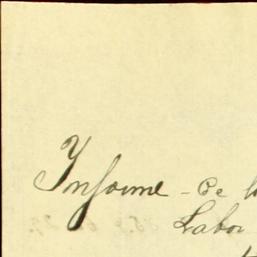 Informe - De l
Labor